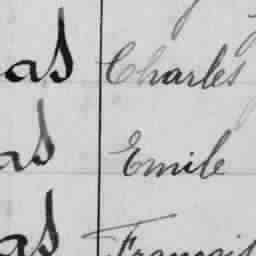 as Charles
as Emile
as François